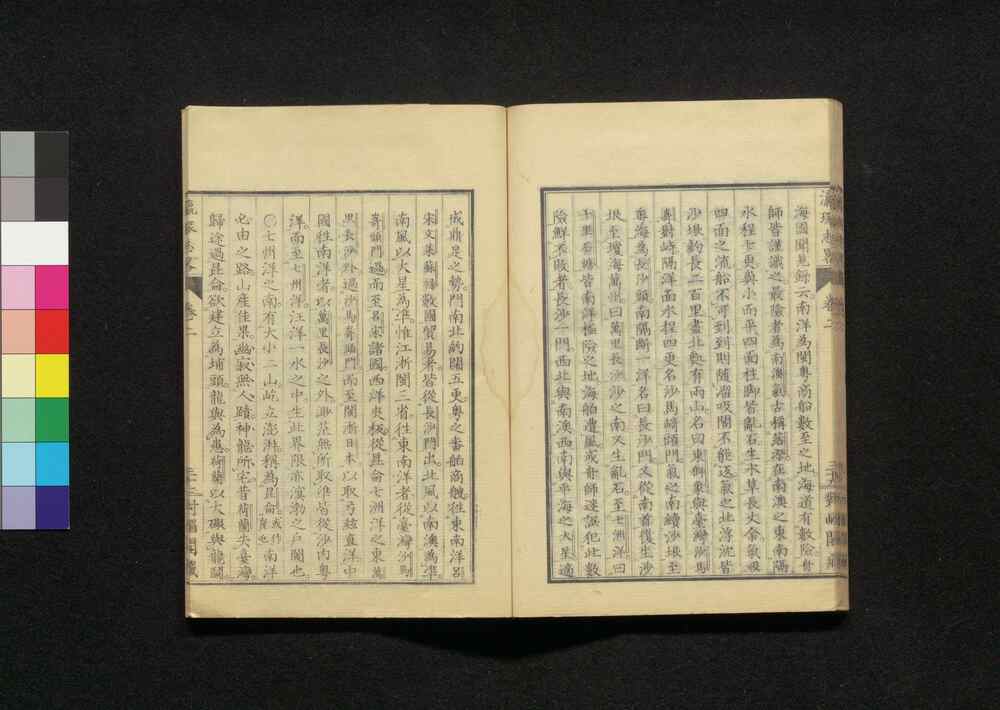 海國聞見錄云南洋為閩粵商船數至之地海道有數險舟
師皆謹識之最險者為南澳氣古稱落漈在南澳之東南隔
水程七更與小而平四面柱腳皆亂石生水草長丈余氣吸
四面之流船不可到到則隨溜吸閣不能返氣之北浮沈皆
沙垠約長二百里盡北處有兩山名曰東獅象與臺灣沙馬
崎對峙隔洋面水程四更名沙馬崎頭門氣之南續沙垠至
粵海為長沙頭南隔斷一洋名曰長沙門又從南首復生沙
垠至瓊海萬州曰萬里長沙沙之南又生亂石至七洲洋曰
千里石塘皆南洋極險之地海舶遭風或舟師迷誤犯此數
險鮮不敗者長沙一門西北與南澳西南與平海之大星適
瀛環志畧 卷二
成鼎足之勢門南北約闊五更粵之番舶商艘往東南洋呂
宋文萊蘇祿數國貿易者皆從長沙門出北風以南澳為準
南風以大星為準惟江浙閩三省往東南洋者從臺灣沙馬
崎頭門過而至呂宋諸國西洋夾板從昆侖七洲洋之東萬
里長沙外過沙馬崎頭門而至閩浙日本以取弓弦直洋中
國往南洋者以萬里長沙之外渺茫無所取準皆從沙內粵
洋而至七州洋汪洋一水之中生此界限亦溟渤之戶閾也
〇七州洋之南有大小二山屹立澎湃稱為昆侖或作崑崙也南洋
必由之路山產佳果幽寂無人蹟神龍所宅昔荷蘭失臺灣
歸途過昆侖欲建立為埔頭龍與為患荷蘭以大礮與龍鬬
瀛環志畧 卷二